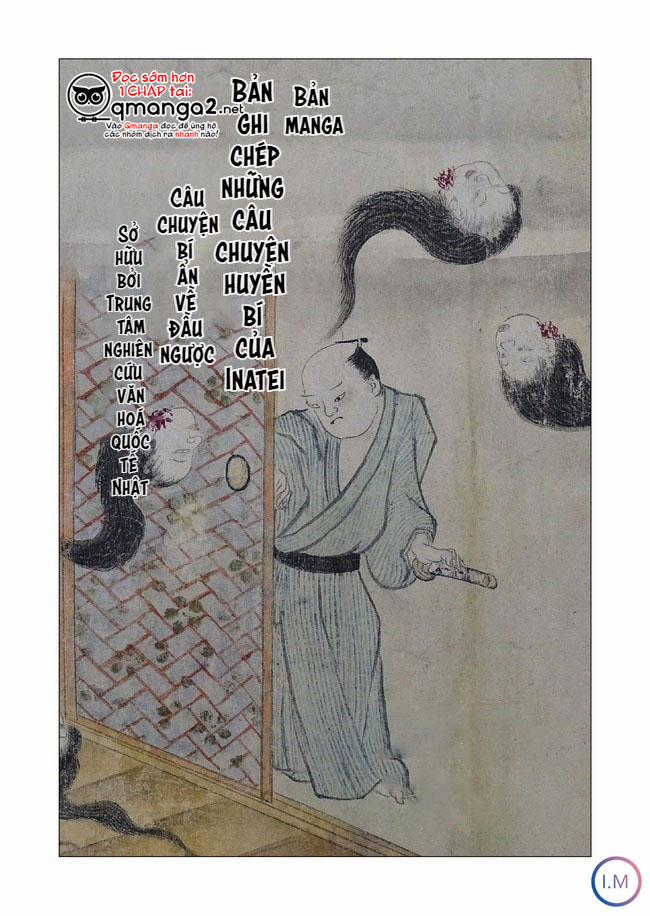 Đọc sớm hơn
1 CHAP tại:
qmanga2.net
Vào Qmanga đọc để ủng hộ
các nhóm dịch ra nhanh nào!
BẢN
MANGA
BẢN
GHI
CHÉP
NHỮNG
CÂU
CHUYỆN
HUYỀN
BÍ
CỦA
INATEI
CÂU
CHUYỆN
BÍ
ẨN
VỀ
ĐẦU
NGƯỢC
SỞ
HỮU
BỞI
TRUNG
TÂM
NGHIÊN
CỨU
VĂN
HOÁ
QUỐC
TẾ
NHẬT
I.M